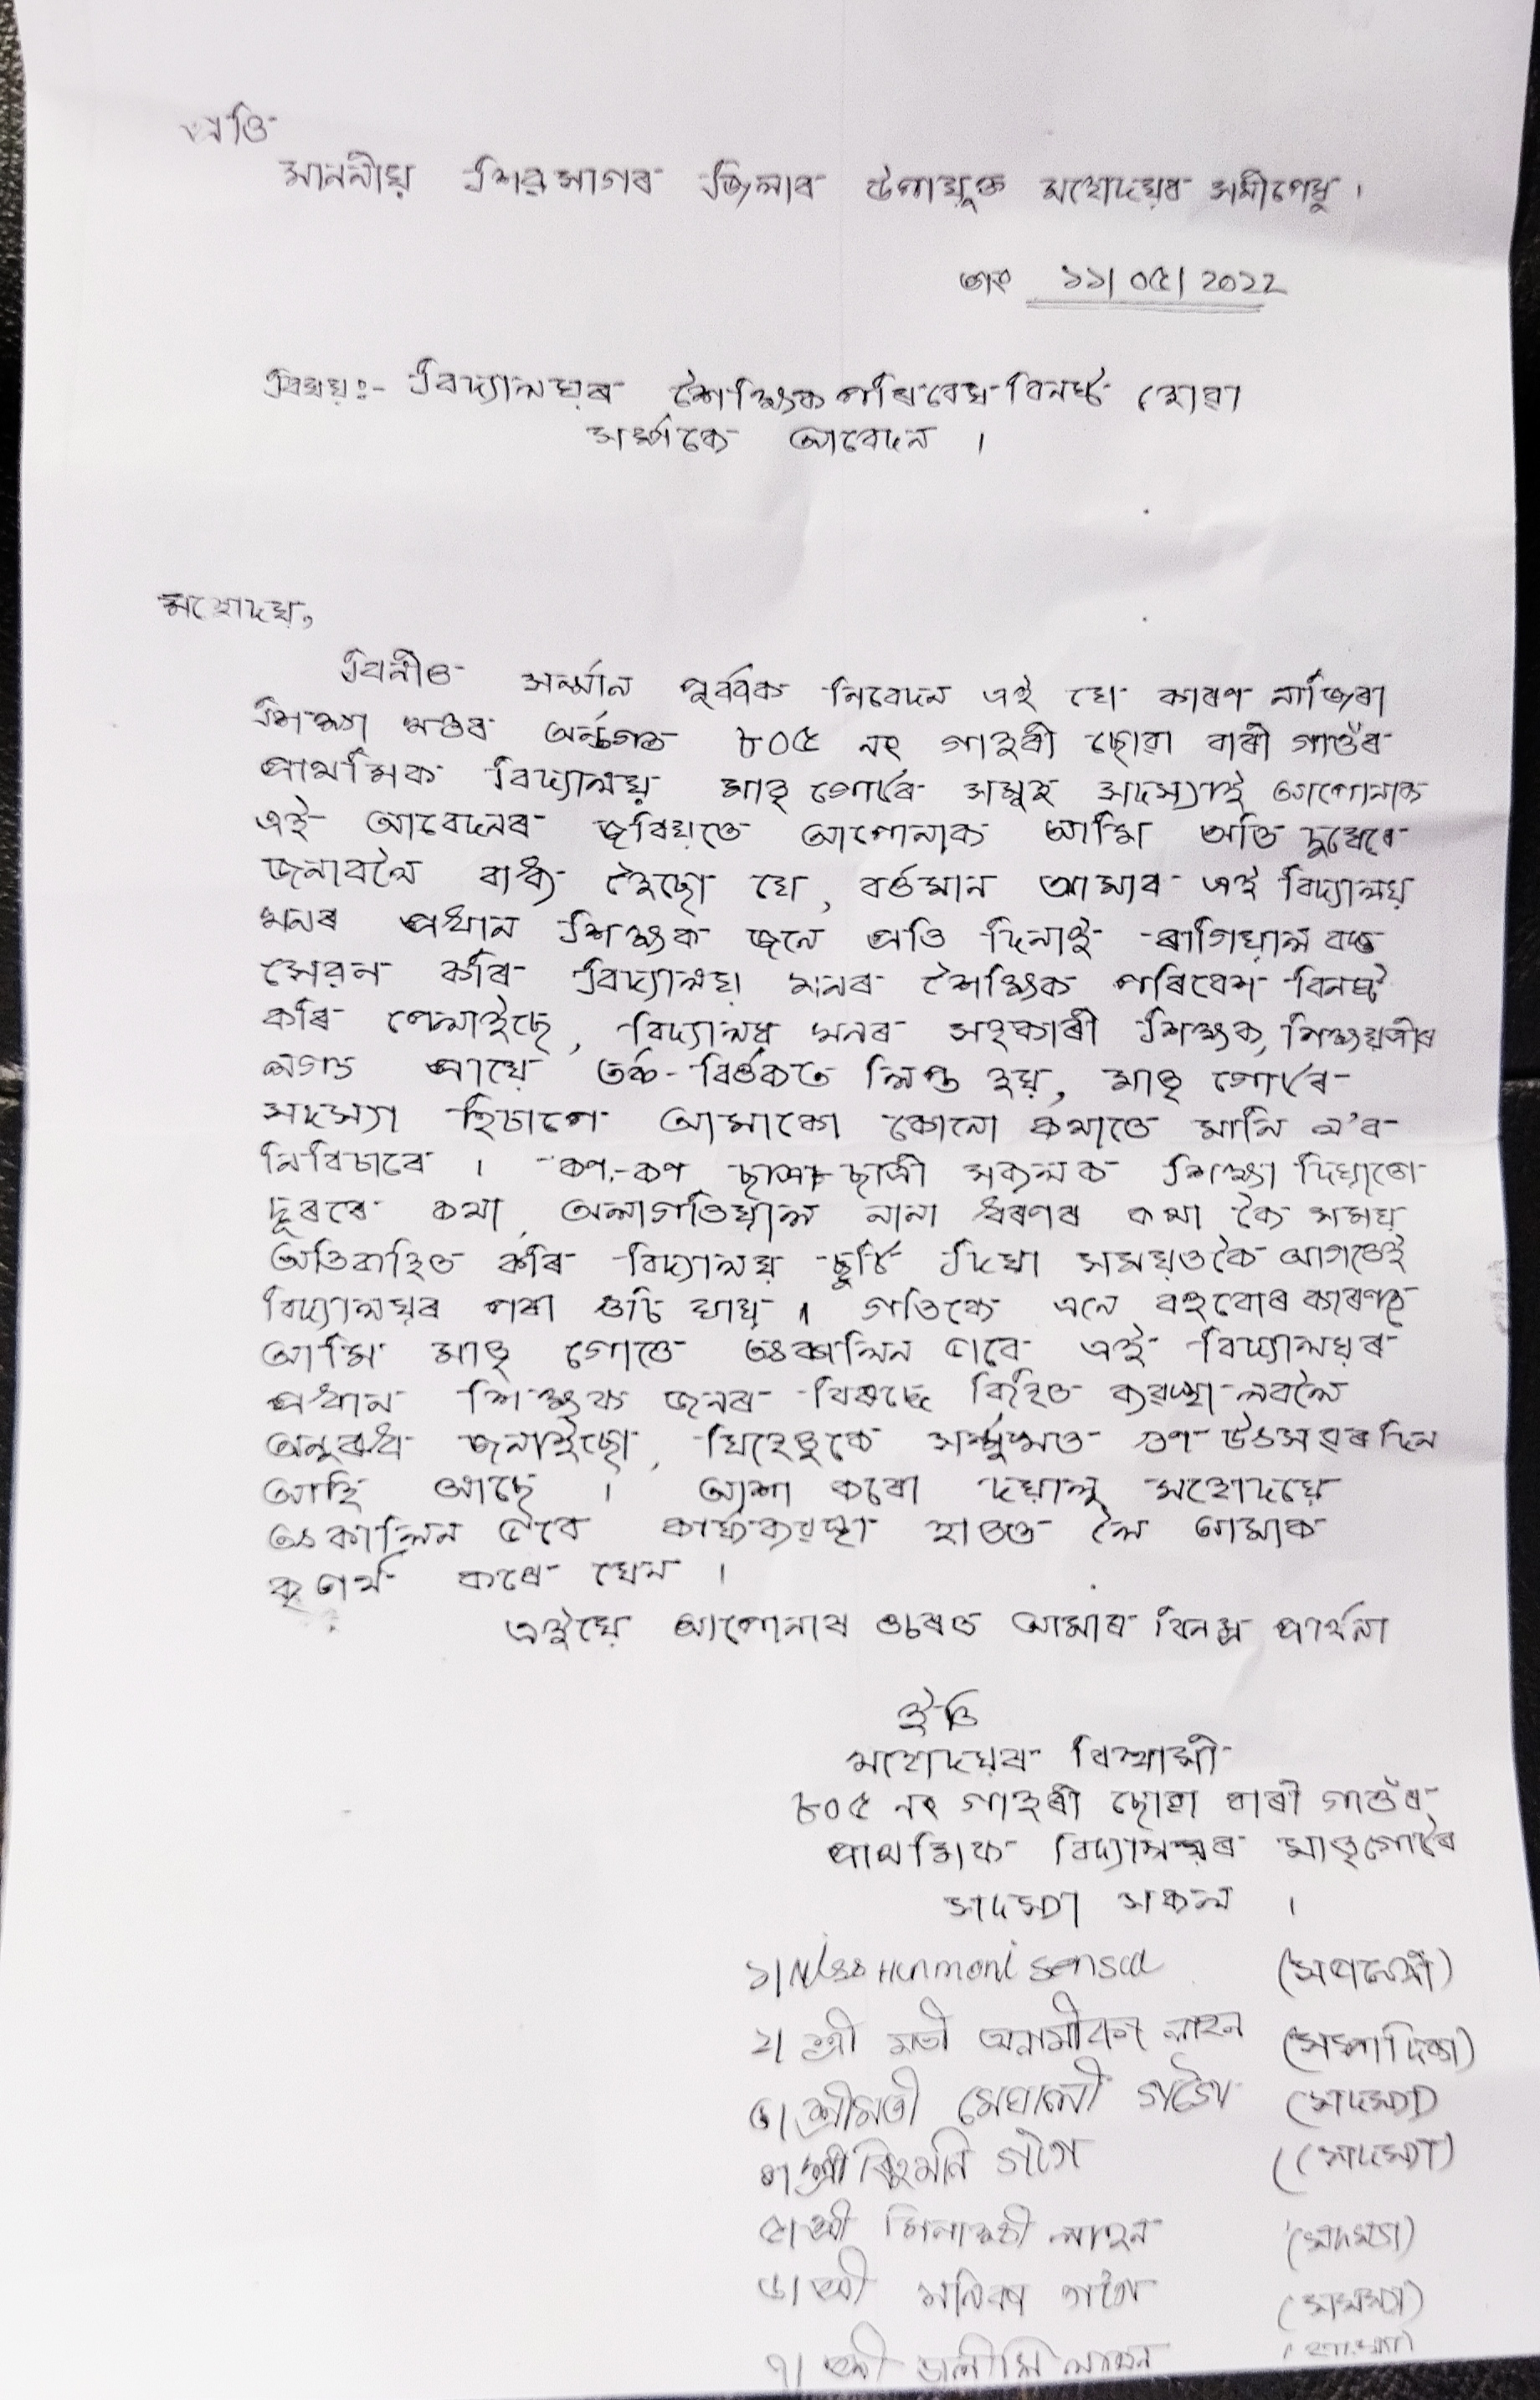 প্ৰতি
মাননীয় শিৱসাগৰ জিলাৰ উপায়ুক্ত মহোদয়ৰ সমীপেষু ।
তাং ১১/ ০৫/ 2022
বিষয়ঃ- বিদ্যালয়ৰ শৈক্ষিক পৰিবেষ বিনষ্ট হোৱা
সৰ্ম্পকে আবেদন ।
মহোদয়,
বিনীত সৰ্ন্মান পূৰ্বক নিবেদন এই যে কাৰণ নাজিৰা
শিক্ষা খণ্ডৰ অৰ্ন্তগত ৮০৫ নং গাহৰী ছোৱা বাৰী গাওঁৰ
প্ৰাথমিক বিদ্যালয় মাতৃ গোটৰ সমূহ সদস্যাই আপোনাক
এই আবেদনৰ জৰিয়তে আপোনাক আমি অতি দুখেৰে
জনাবলৈ বাধ্য হৈছো যে, বৰ্তমান আমাৰ এই বিদ্যালয়
খনৰ প্ৰধান শিক্ষক জনে প্ৰতি দিনাই ৰাগিয়াল বস্তু
সেৱন কৰি বিদ্যালয় খনৰ শৈক্ষিক পৰিবেশ বিনষ্ট
কৰি পেলাইছে, বিদ্যালয় খনৰ সহকাৰী শিক্ষক, শিক্ষয়ত্ৰীৰ
লগত প্ৰায়ে তৰ্ক-বিৰ্তকত লিপ্ত হয়, মাতৃ গোটৰ
সদস্যা হিচাপে আমাকো কোনো কথাতে মানি ল'ব
নিবিচাৰে । কণ-কণ ছাত্ৰ-ছাত্ৰী সকলক শিক্ষা দিয়াতো
দূৰৰে কথা, অলাগতিয়াল নানা ধৰণৰ কথা কৈ সময়
অতিবাহিত কৰি বিদ্যালয় ছুটি দিয়া সময়তকৈ আগতেই
বিদ্যালয়ৰ পৰা গুচি যায় । গতিকে এনে বহুবোৰ কাৰণত
আমি মাতৃ গোটে তৎকালিন ভাবে এই বিদ্যালয়ৰ
প্ৰধান শিক্ষক জনৰ বিৰূদ্ধে বিহিত ব্যৱস্থা লবলৈ
অনুৰূধ জনাইছো, যিহেতুকে সৰ্ন্মুখত গুণ উৎসৱৰ দিন
আহি আছে । আশা কৰো দয়ালু মহোদয়ে
তৎকালিন ভাবে কাৰ্যব্যৱস্থা হাতত লৈ আমাক
কৃতাৰ্থ কৰে যেন ।
এইয়ে আপোনাৰ ওচৰত আমাৰ বিনম্ৰ প্ৰাৰ্থনা
ইতি
মহোদয়ৰ বিশ্বাসী
৮০৫ নং গাহৰী ছোৱা বাৰী গাওঁৰ
প্ৰাথমিক বিদ্যালয়ৰ মাতৃগোটৰ
সদস্যা সকল ।
১/ Hunmoni sensua (সভানেত্ৰী)
২/ শ্ৰী মতী অনামীকা লাহন (সম্পাদিকা)
৩/ শ্ৰীমতী মেঘালী গগৈ (সদস্যা)
৪/ শ্ৰী ৰিহুমনি গগৈ (সদস্যা)
৫/ শ্ৰী লাহন (সদস্যা)
৬/ শ্ৰী মনিকা গগৈ (সদস্যা)
৭/ শ্ৰী